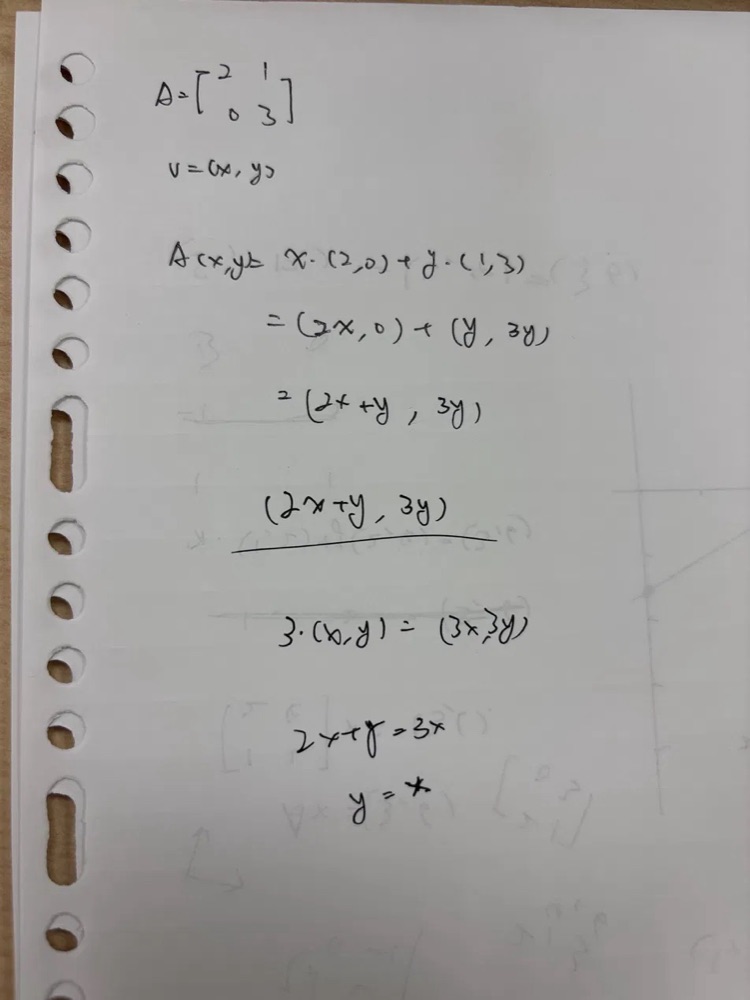 A=[2 1
0 3]
v=(x,y)
A(x,y)= x·(2,0)+y·(1,3)
=(2x,0)+(y,3y)
=(2x+y,3y)
(2x+y,3y)
3·(x,y)=(3x,3y)
2x+y=3x
y=x